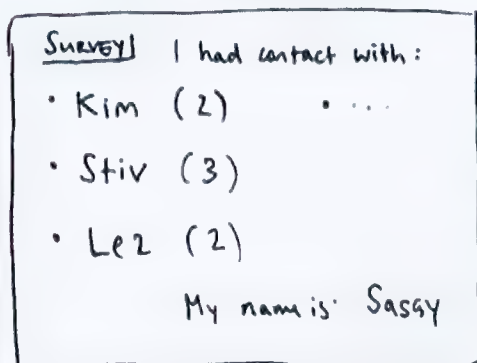 SURVEY I had contact with:
• Kim (2) • ...
• Stiv (3)
• Lez (2)
My name is Sassy